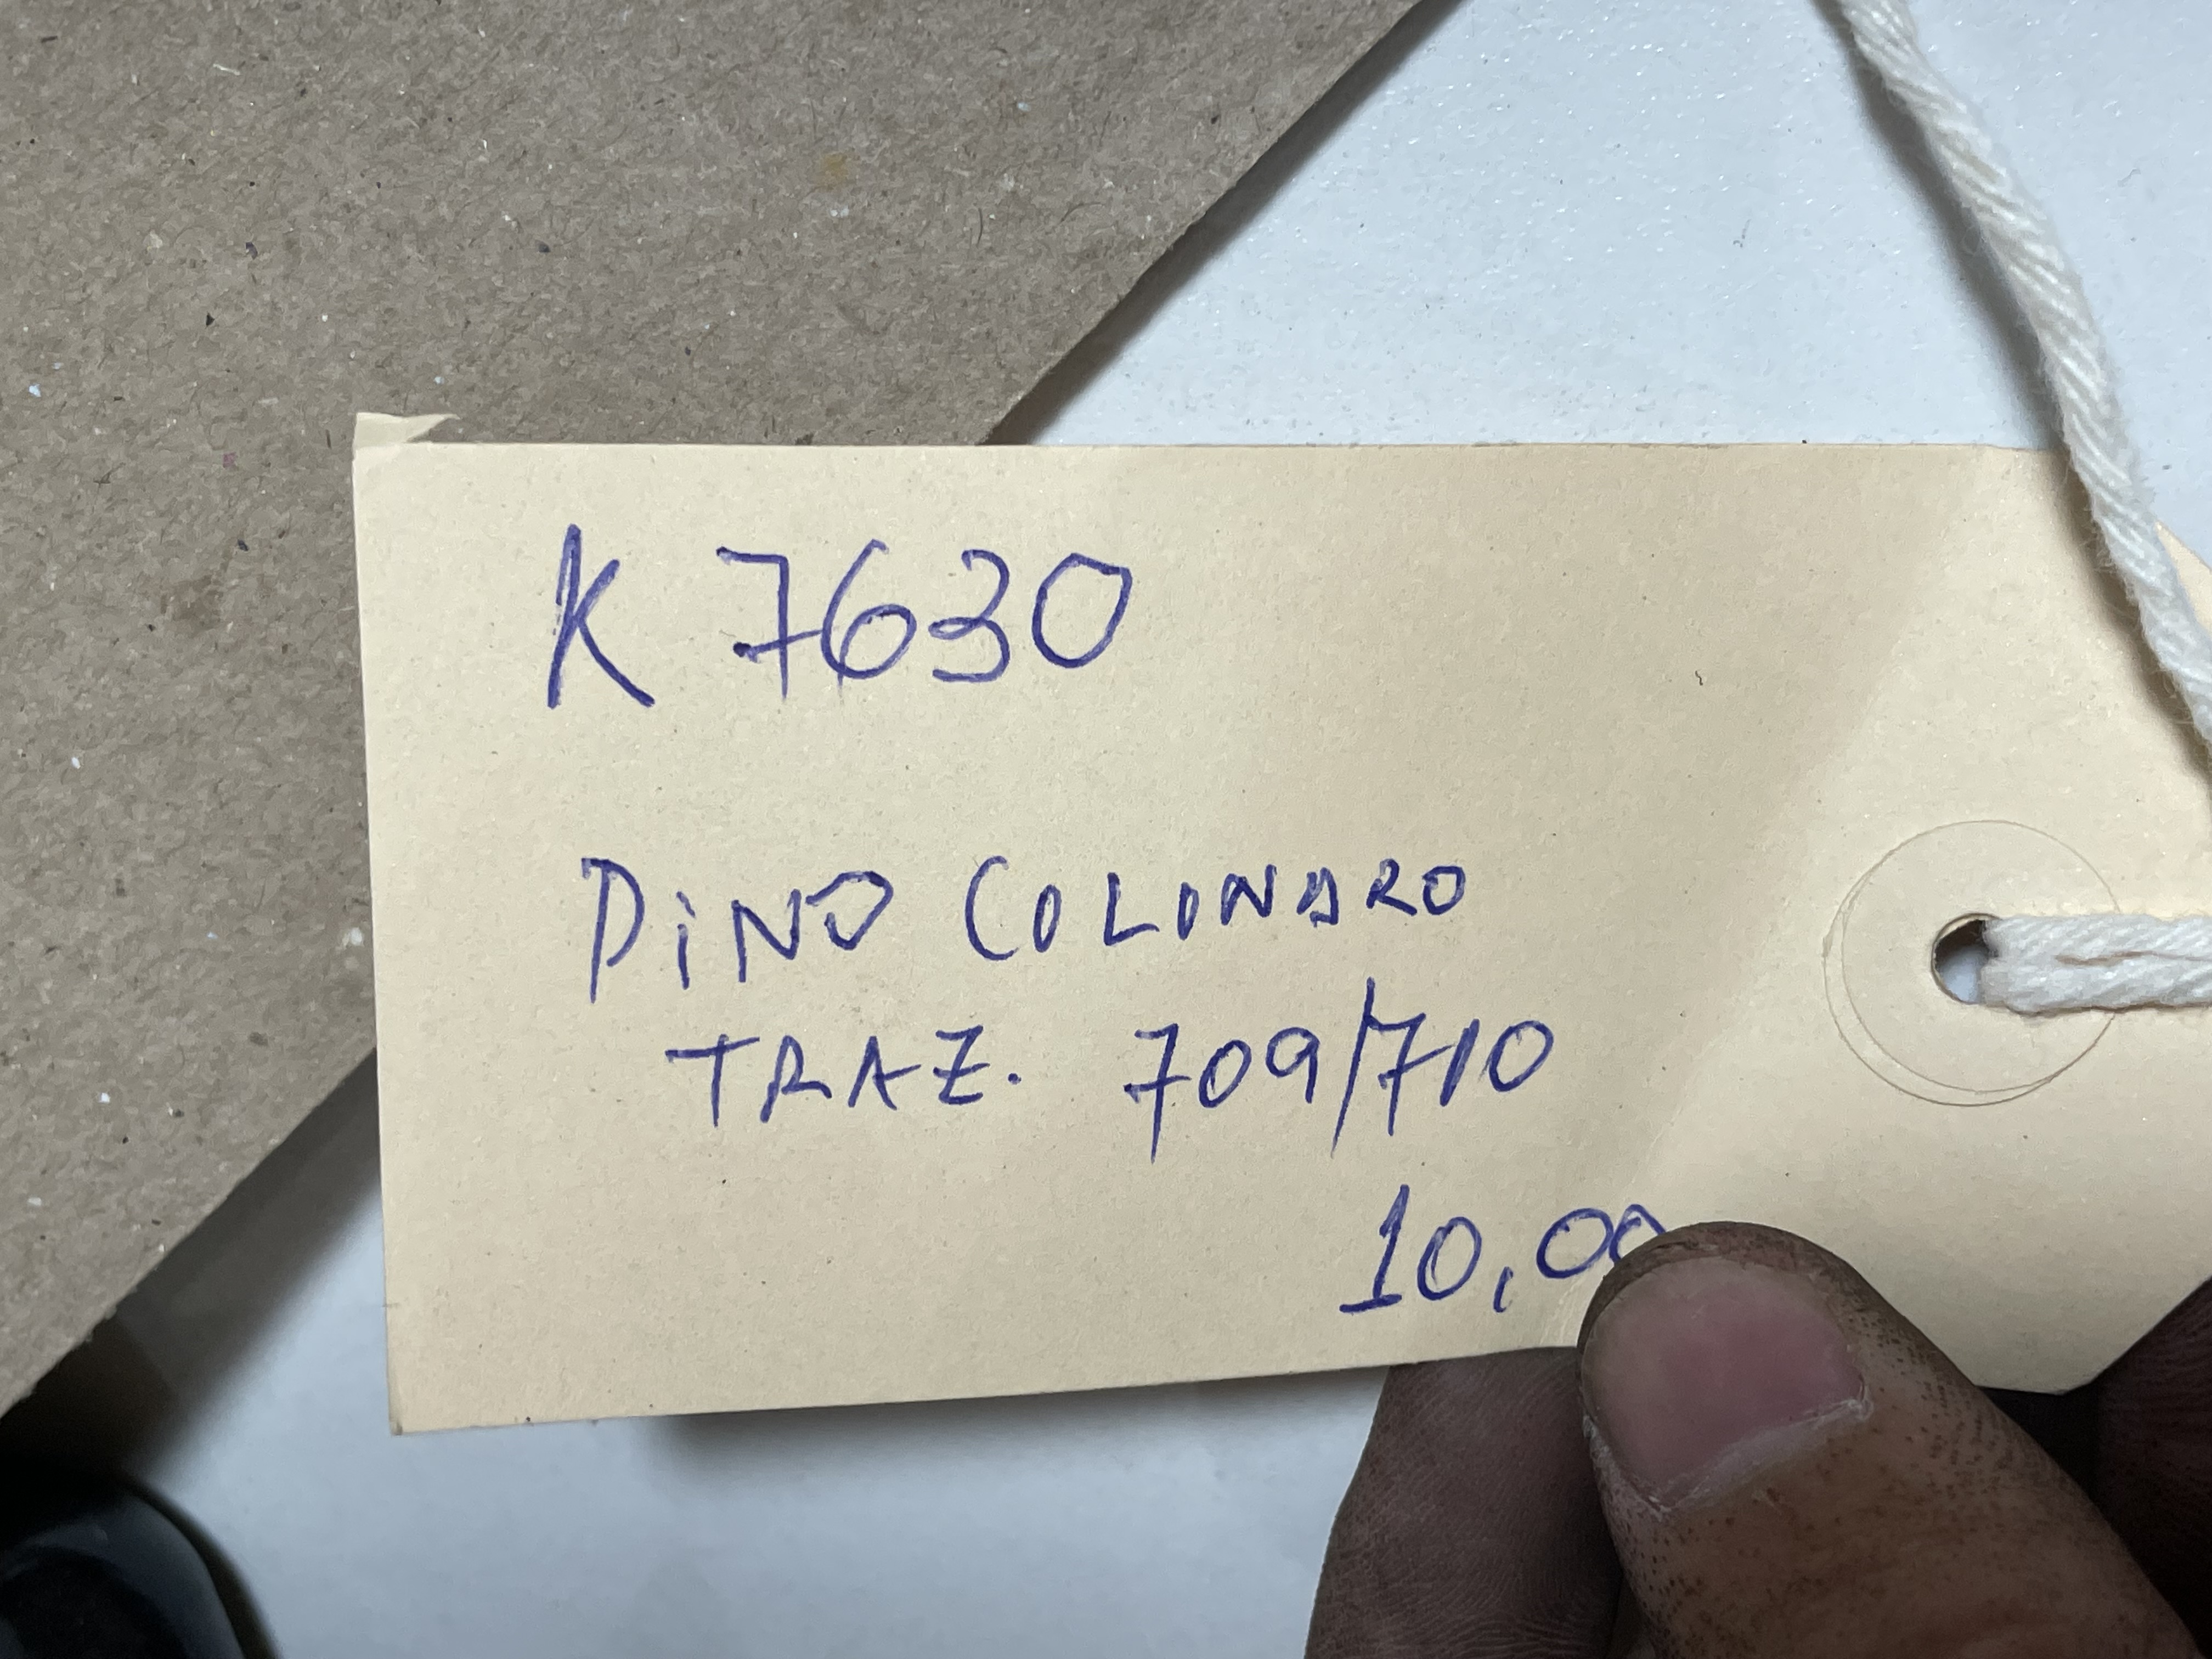 K 7630
PiNO COLONARO
TRAZ. 709/710
10,00